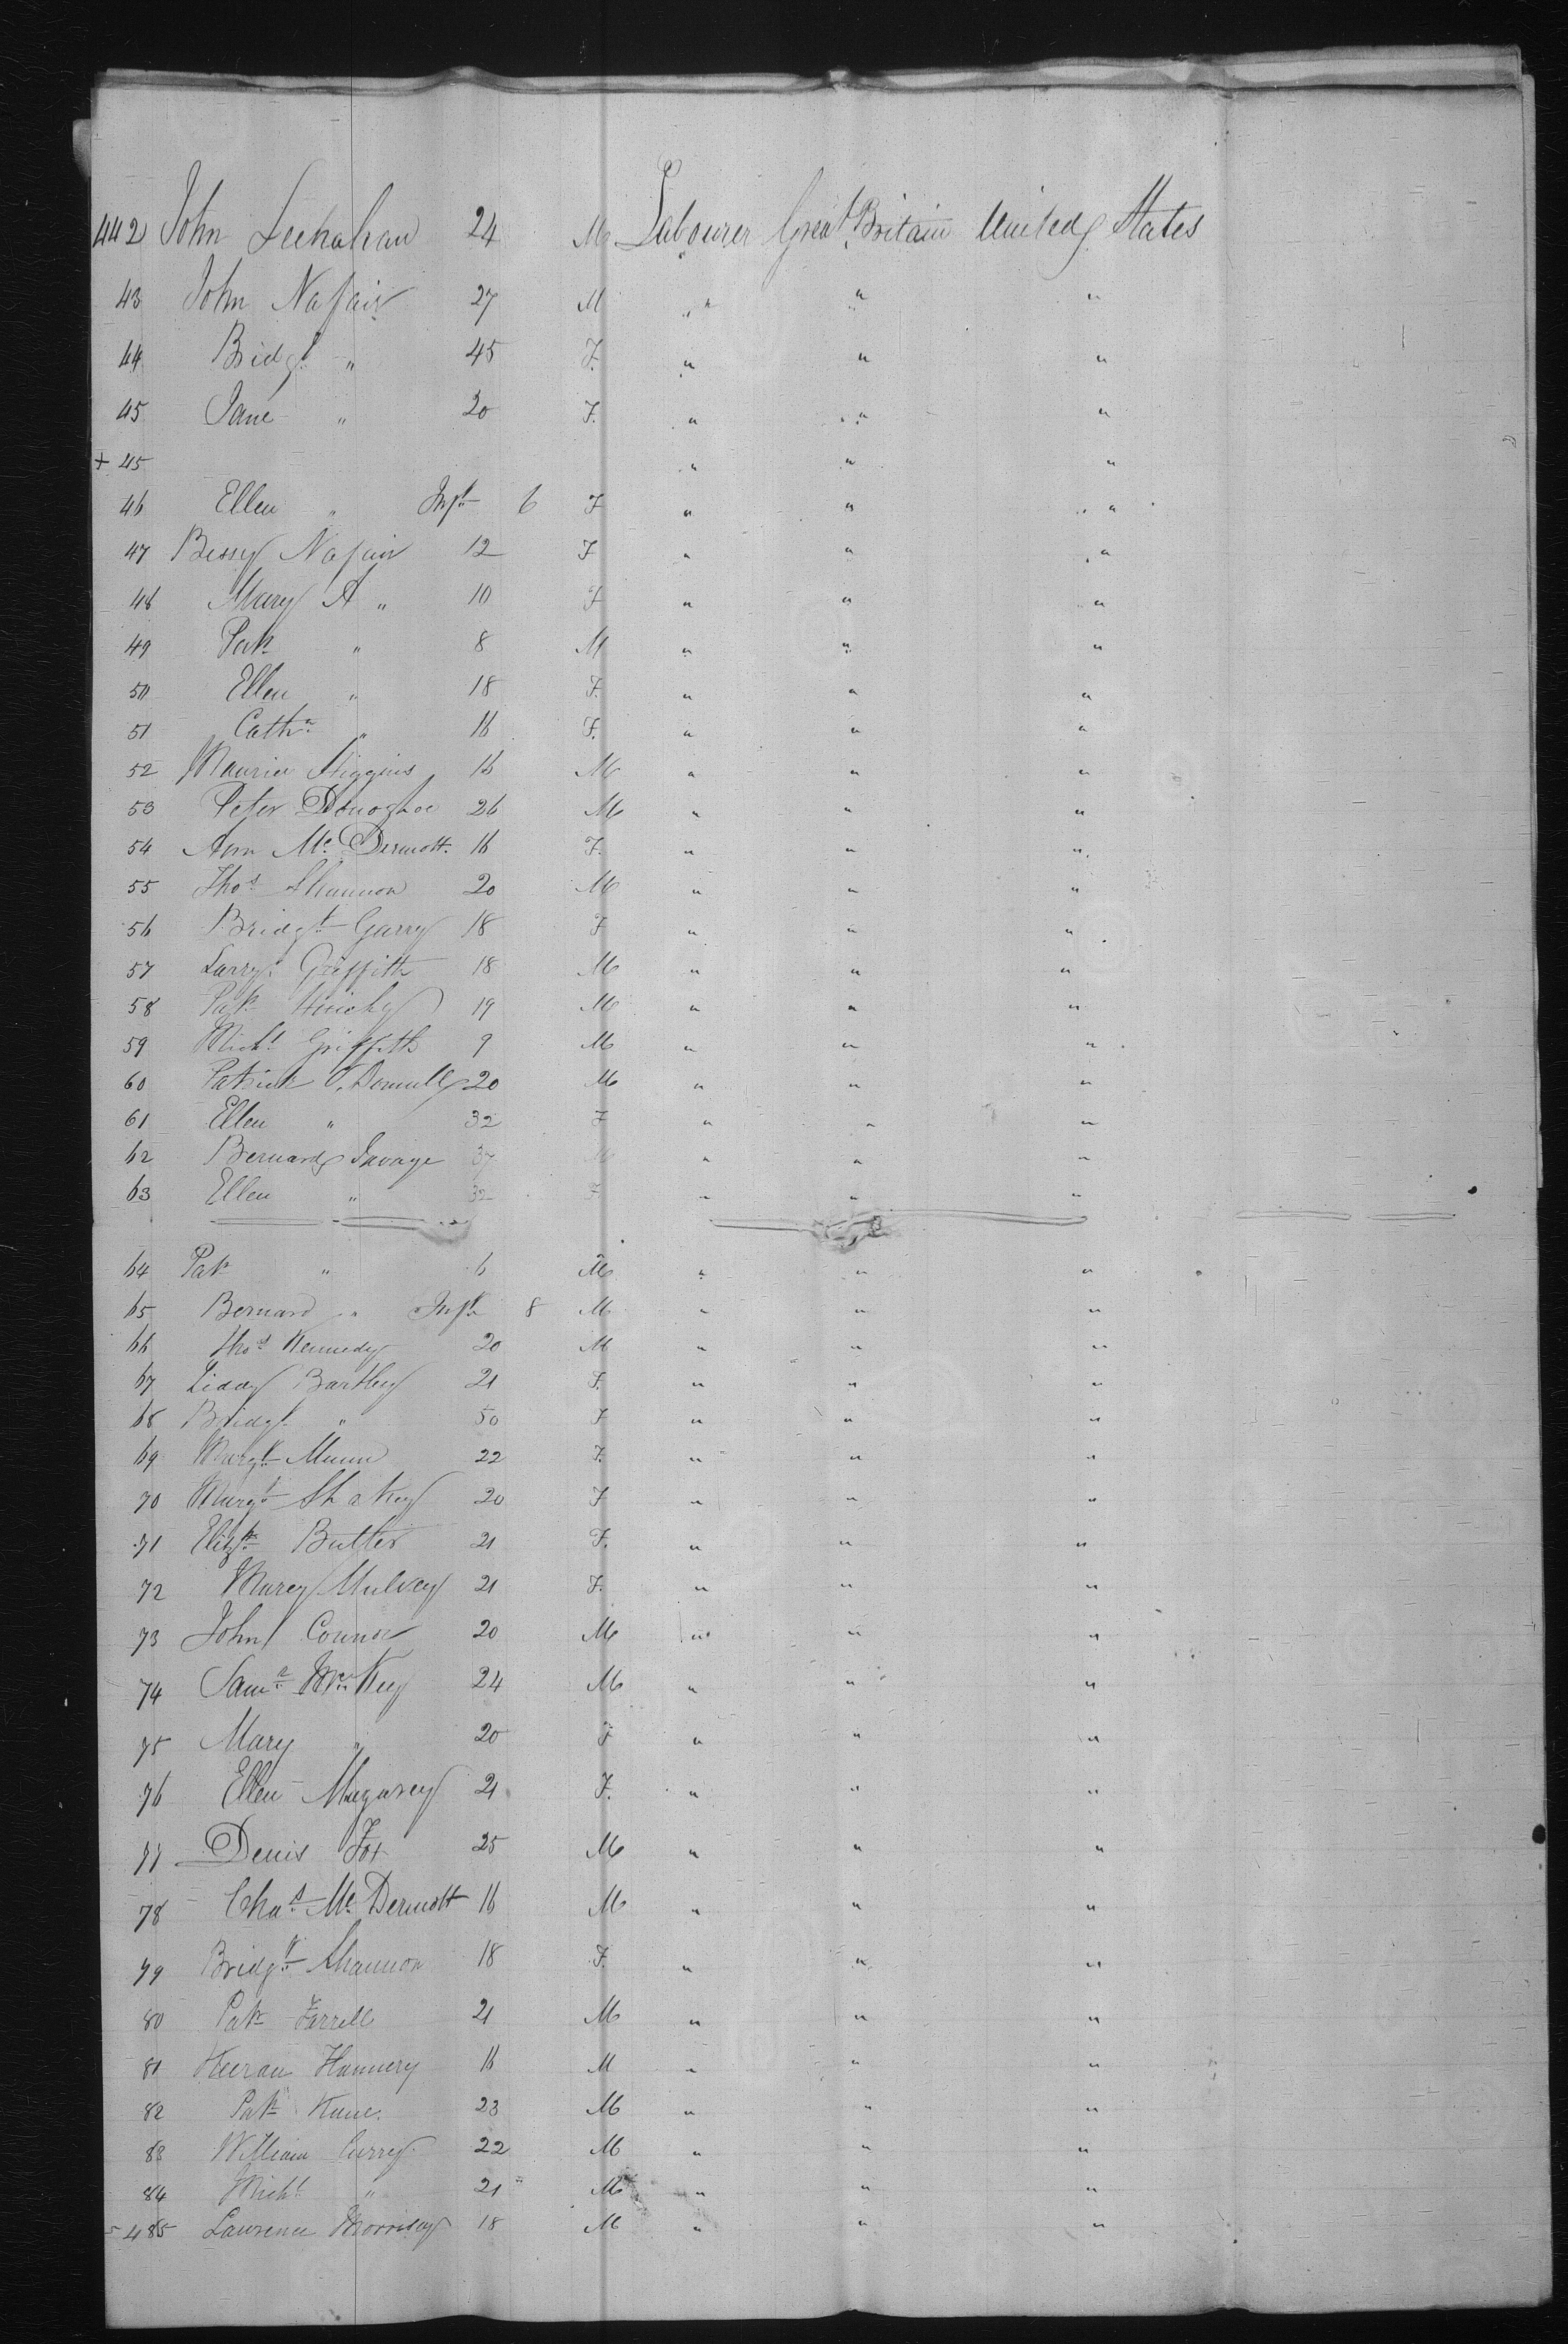 442 John Leehahan 24 M Labourer Great Britain United States
43 John Nafair 27 M " " "
44 Bridgt " 45 F. " " "
45 Jane " 20 F. " " "
+ 45 " " "
46 Ellen " Inft 6 F " " "
47 Bessy Nafair 12 F " " "
48 Mary A " 10 F " " "
49 Patk " 8 M " " "
50 Ellen " 18 F. " " "
51 Cathn " 16 F. " " "
52 Maurice Higgins 16 M " " "
53 Peter Donoghoe 26 M " " "
54 Ann Mc Dermott. 16 F. " " "
55 Thos Shannon 20 M " " "
56 Bridgt Garry 18 F " " "
57 Larry Griffith 18 M " " "
58 Patk 19 M " " "
59 Michl Griffith 9 M " " "
60 Patrick O'Donnell 20 M " " "
61 Ellen " 32 F " " "
62 Bernard Savage 37 M " " "
63 Ellen " 32 F " " "
64 Patk " 6 M " " "
65 Bernard " Inft 8 M " " "
66 Thos Kennedy 20 M " " "
67 Liddy Bartley 21 F. " " "
68 Bridgt " 50 F " " "
69 Margt Munn 22 F. " " "
70 Margt Shakey 20 F " " "
71 Elizth Butler 21 F. " " "
72 Mary Mulvey 21 F. " " "
73 John Connor 20 M " " "
74 Saml McKey 24 M " " "
75 Mary " 20 F " " "
76 Ellen Magarey 21 F. " " "
77 Denis Fox 25 M " " "
78 Chas Mc Dermott 16 M " " "
79 Bridgt Shannon 18 F. " " "
80 Patk Farrell 21 M " " "
81 Keeran Hannery 16 M " " "
82 Patk Kane. 23 M " " "
83 William Curry 22 M " " "
84 Michl " 21 M " " "
485 Lawrence Morrisey 18 M " " "